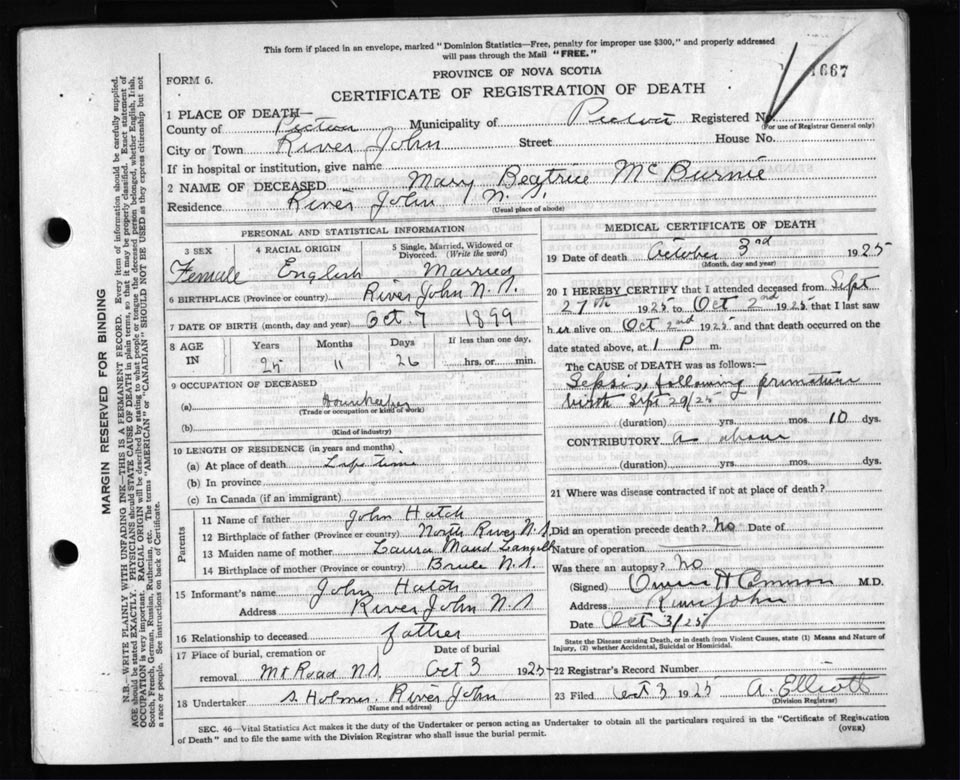 This form if placed in an envelope, marked "Dominion Statistics—Free, penalty for improper use $300," and properly addressed
will pass through the Mail "FREE."
PROVINCE OF NOVA SCOTIA
1667
FORM 6.
CERTIFICATE OF REGISTRATION OF DEATH
1 PLACE OF DEATH—
County of Pictou Municipality of Pictou Registered No.
(For use of Registrar General only)
City or Town River John Street House No.
If in hospital or institution, give name
2 NAME OF DECEASED Mary Beatrice McBurnie
Residence River John N.S.
(Usual place of abode)
PERSONAL AND STATISTICAL INFORMATION
3 SEX 4 RACIAL ORIGIN 5 Single, Married, Widowed or
Divorced. (Write the word)
Female English Married
6 BIRTHPLACE (Province or country) River John N.S.
7 DATE OF BIRTH (month, day and year) Oct. 7 1899
8 AGE IN Years Months Days If less than one day,
25 11 26 hrs. or min.
9 OCCUPATION OF DECEASED
(a) Housekeeper
(Trade or occupation or kind of work)
(b)
(Kind of industry)
10 LENGTH OF RESIDENCE (in years and months)
(a) At place of death Life time
(b) In province
(c) In Canada (if an immigrant)
Parents
11 Name of father John Hatch
12 Birthplace of father (Province or country) North River N.S.
13 Maiden name of mother Laura Maud Langill
14 Birthplace of mother (Province or country) Brule N.S.
15 Informant's name John Hatch
Address River John N.S.
16 Relationship to deceased father
17 Place of burial, cremation or Date of burial
removal Mt Road N.S. Oct 3 1925
18 Undertaker S. Holmes, River John
(Name and address)
MEDICAL CERTIFICATE OF DEATH
19 Date of death October 3rd 1925
(Month, day and year)
20 I HEREBY CERTIFY that I attended deceased from Sept
27th 1925 to Oct 2nd 1925, that I last saw
her alive on Oct 2nd 1925 and that death occurred on the
date stated above, at 1 P m.
The CAUSE OF DEATH was as follows:—
Sepsis, following premature
birth Sept 29/25
(duration) yrs. mos. 10 dys.
CONTRIBUTORY as above
(duration) yrs. mos. dys.
21 Where was disease contracted if not at place of death?
Did an operation precede death? No Date of
Nature of operation
Was there an autopsy? No
(Signed) Owen H Cameron M.D.
Address River John
Date Oct 3/25
State the Disease causing Death, or in death from Violent Causes, state (1) Means and Nature of
Injury, (2) whether Accidental, Suicidal or Homicidal.
22 Registrar's Record Number
23 Filed Oct 3 1925 A. Elliott
(Division Registrar)
SEC. 46—Vital Statistics Act makes it the duty of the Undertaker or person acting as Undertaker to obtain all the particulars required in the "Certificate of Registration
of Death" and to file the same with the Division Registrar who shall issue the burial permit.
(OVER)
MARGIN RESERVED FOR BINDING
N.B.—WRITE PLAINLY WITH UNFADING INK—THIS IS A PERMANENT RECORD. Every item of information should be carefully supplied.
AGE should be stated EXACTLY. PHYSICIANS should STATE CAUSE OF DEATH in plain terms, so that it may be properly classified. Exact statement of
OCCUPATION is very important. RACIAL ORIGIN will be described by stating to what people or tongue the deceased person belonged, whether English, Irish,
Scotch, French, German, Russian, Ruthenian, etc. The terms "AMERICAN" or "CANADIAN" SHOULD NOT BE USED as they express citizenship but not
a race or people. See instructions on back of Certificate.